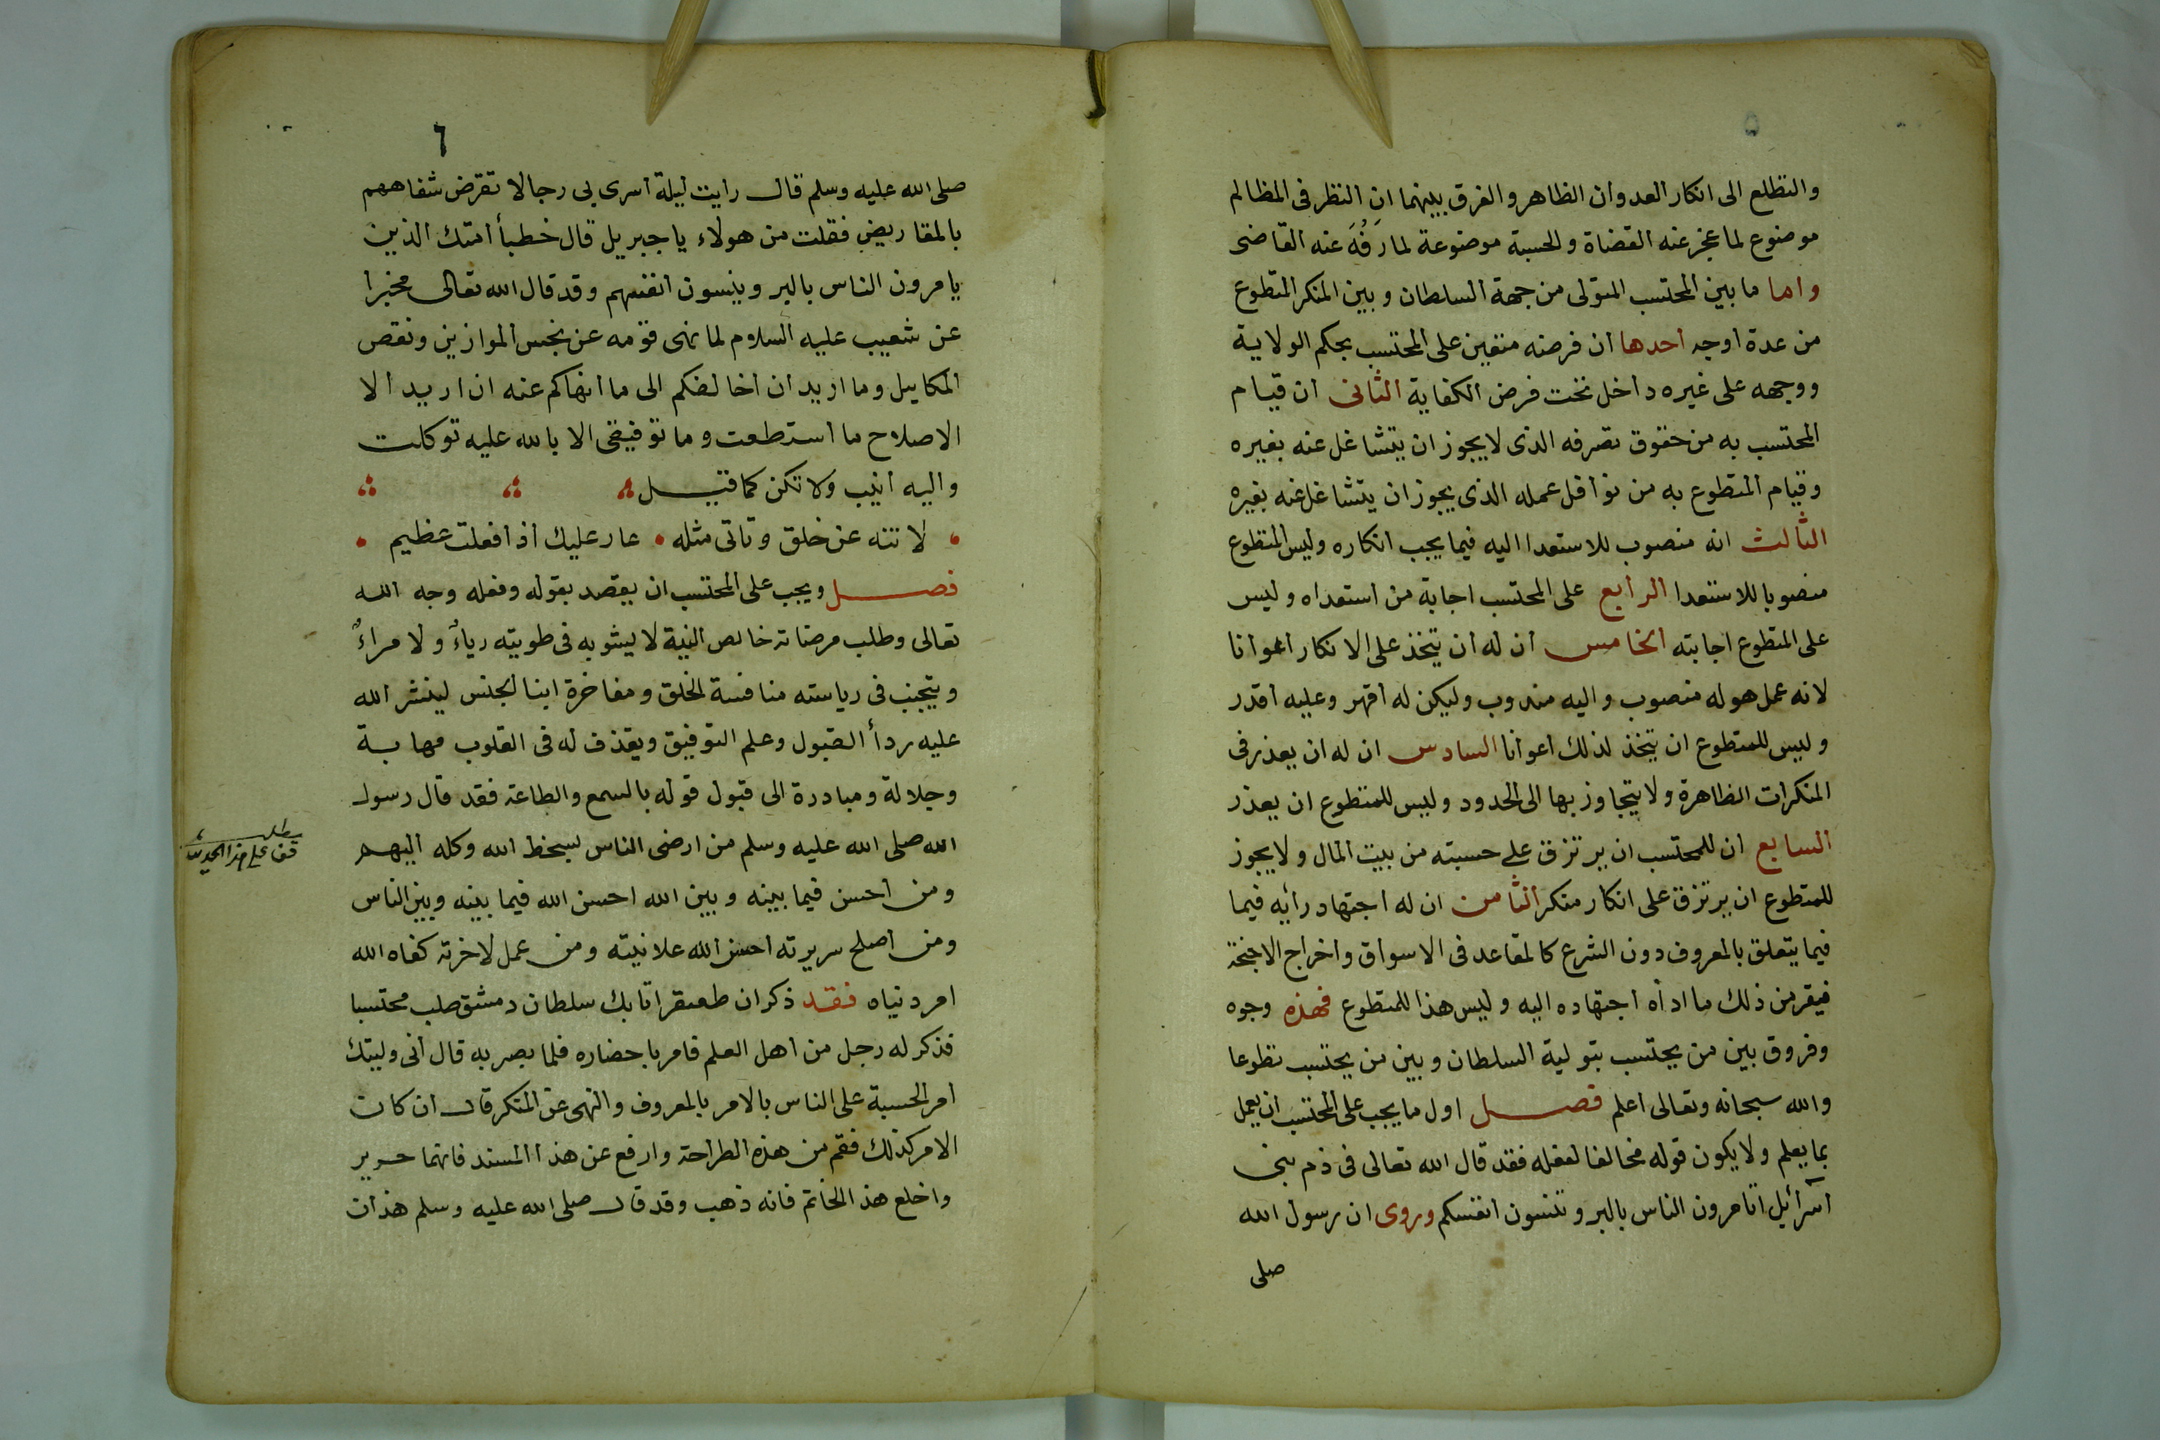 ٥
والتطلع الى انكار العدوان الظاهر والفرق بينهما ان النظر فى المظالم
موضوع لما عجز عنه القضاة والحسبة موضوعة لما رَفُهَ عنه القاضى
واما ما بين المحتسب المتولى من جهة السلطان وبين المنكر المتطوع
من عدة اوجه احدها ان فرضه متعين على المحتسب بحكم الولاية
ووجهه على غيره داخل تحت فرض الكفاية الثانى ان قيام
المحتسب به من حقوق تصرفه الذى لا يجوز ان يتشاغل عنه بغيره
وقيام المتطوع به من نوافل عمله الذى يجوز ان يتشاغل عنه بغيره
الثالث انه منصوب للاستعدا اليه فيما يجب انكاره وليس المتطوع
منصوبا للاستعدا الرابع على المحتسب اجابة من استعداه وليس
على المتطوع اجابته الخامس ان له ان يتخذ على الانكار اعوانا
لانه عمل هو له منصوب واليه مندوب وليكن له اقهر وعليه اقدر
وليس للمتطوع ان يتخذ لذلك اعوانا السادس ان له ان يعذر فى
المنكرات الظاهرة ولا يتجاوز بها الى الحدود وليس للمتطوع ان يعذر
السابع ان للمحتسب ان يرتزق على حسبته من بيت المال ولا يجوز
للمتطوع ان يرتزق على انكار منكر الثامن ان له اجتهاد رايه فيما
فيما يتعلق بالمعروف دون الشرع كالمقاعد فى الاسواق واخراج الاجنحة
فيقر من ذلك ما اداه اجتهاده اليه وليس هذا للمتطوع فهذه وجوه
وفروق بين من يحتسب بتولية السلطان وبين من يحتسب تطوعا
والله سبحانه وتعالى اعلم فصل اول ما يجب على المحتسب ان يعمل
بما يعلم ولا يكون قوله مخالفا لفعله فقد قال الله تعالى فى ذم بنى
اسرائيل اتامرون الناس بالبر وتنسون انفسكم وروى ان رسول الله
صلى
٦
صلى الله عليه وسلم قال رايت ليلة اسرى بى رجالا تقرض شفاههم
بالمقاريض فقلت من هولاء يا جبريل قال خطبأ امتك الذين
يامرون الناس بالبر وينسون انفسهم وقد قال الله تعالى مخبرا
عن شعيب عليه السلام لما نهى قومه عن بخس الموازين ونقص
المكاييل وما اريد ان اخالفكم الى ما انهاكم عنه ان اريد الا
الاصلاح ما استطعت وما توفيقى الا بالله عليه توكلت
واليه انيب ولا تكن كما قيل
لا تنه عن خلق وتاتى مثله عار عليك اذا فعلت عظيم
فصل ويجب على المحتسب ان يقصد بقوله وفعله وجه الله
تعالى وطلب مرضاته خالص النية لا يشوبه فى طويته رياءٌ ولا مراءٌ
ويتجنب فى رياسته منافسة الخلق ومفاخرة ابنا الجنس لينشر الله
عليه ردأ القبول وعلم التوفيق ويقذف له فى القلوب مهابة
وجلالة ومبادرة الى قبول قوله بالسمع والطاعة فقد قال رسول
الله صلى الله عليه وسلم من ارضى الناس بسخط الله وكله اليهم
ومن احسن فيما بينه وبين الله احسن الله فيما بينه وبين الناس
ومن اصلح سريرته احسن الله علانيته ومن عمل لاخرته كفاه الله
امر دنياه فقد ذكر ان طعىقر اتابك سلطان دمشق طلب محتسبا
فذكر له رجل من اهل العلم فامر باحضاره فلما بصر به قال انى وليتك
امر الحسبة على الناس بالامر بالمعروف والنهى عن المنكر قال ان كان
الامر كذلك فقم من هذه الطراحة وارفع عن هذا المسند فانهما حرير
واخلع هذا الخاتم فانه ذهب وقد قال صلى الله عليه وسلم هذان
مطلب
قف على هذا الحديث